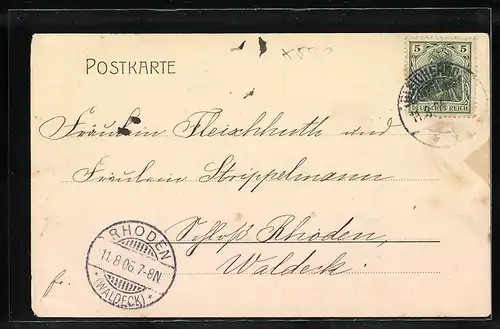 POSTKARTE
5 5
DEUTSCHES REICH
Fräulein Fleischhuth und
Fräulein Strippelmann
Schloß Rhoden,
Waldeck.
fr.
RHODEN
11.8.06.7-8N.
*(WALDECK)*